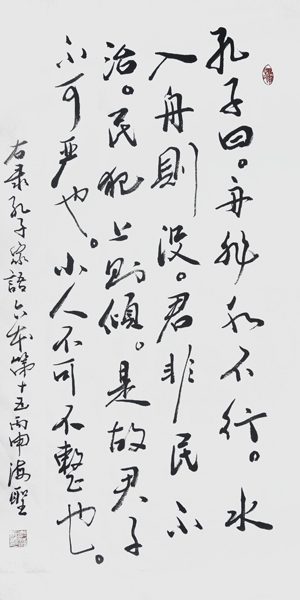 孔子曰。舟非水不行。水
入舟則沒。君非民不
治。民犯上則傾。是故君子
不可严也。小人不可不整也。
右录孔子家語六本第十五丙申海聖